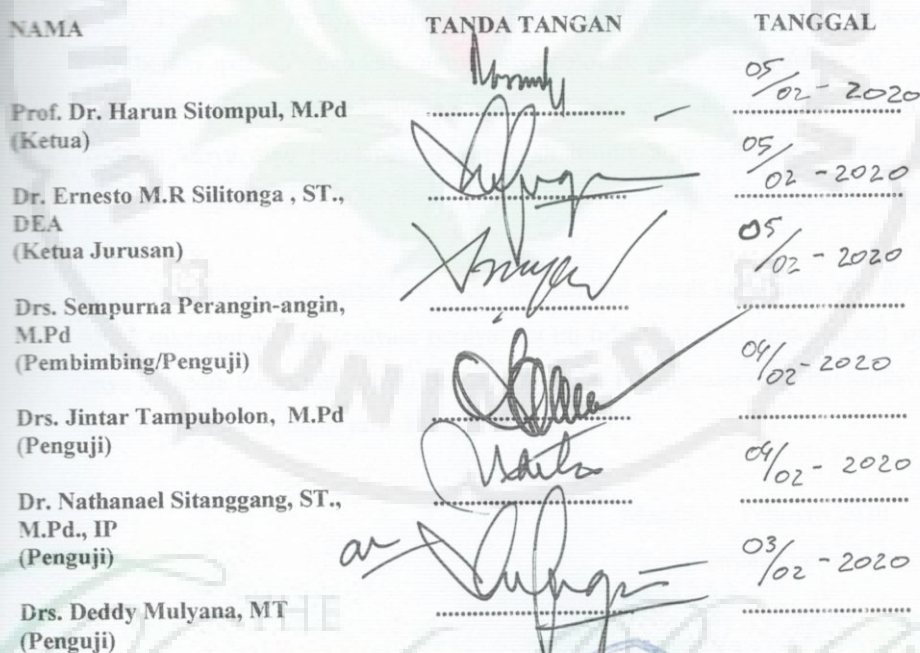 NAMA TANDA TANGAN TANGGAL
Prof. Dr. Harun Sitompul, M.Pd
(Ketua)
05/02 - 2020
Dr. Ernesto M.R Silitonga , ST.,
DEA
(Ketua Jurusan)
05/02 - 2020
Drs. Sempurna Perangin-angin,
M.Pd
(Pembimbing/Penguji)
05/02 - 2020
Drs. Jintar Tampubolon, M.Pd
(Penguji)
04/02 - 2020
Dr. Nathanael Sitanggang, ST.,
M.Pd., IP
(Penguji)
04/02 - 2020
an
Drs. Deddy Mulyana, MT
(Penguji)
03/02 - 2020
UNIMED
THE